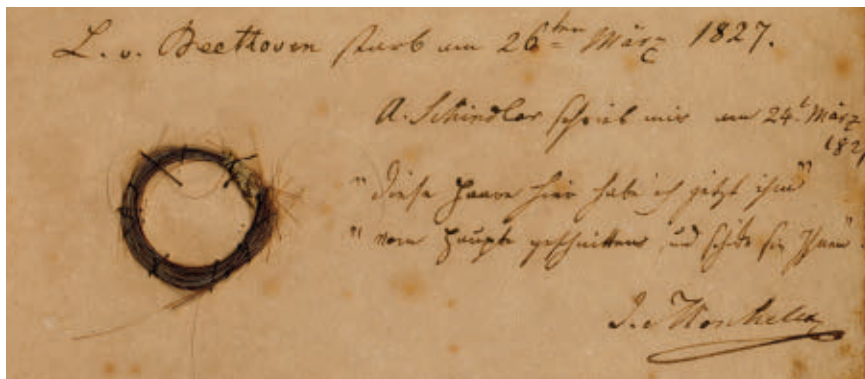 L. v. Beethoven starb am 26ten März 1827.
A. Schindler schrieb mir am 24t März
182
"diese Haare hier habe ich jetzt ihm"
"vom Haupte geschnitten, und schicke sie Ihnen